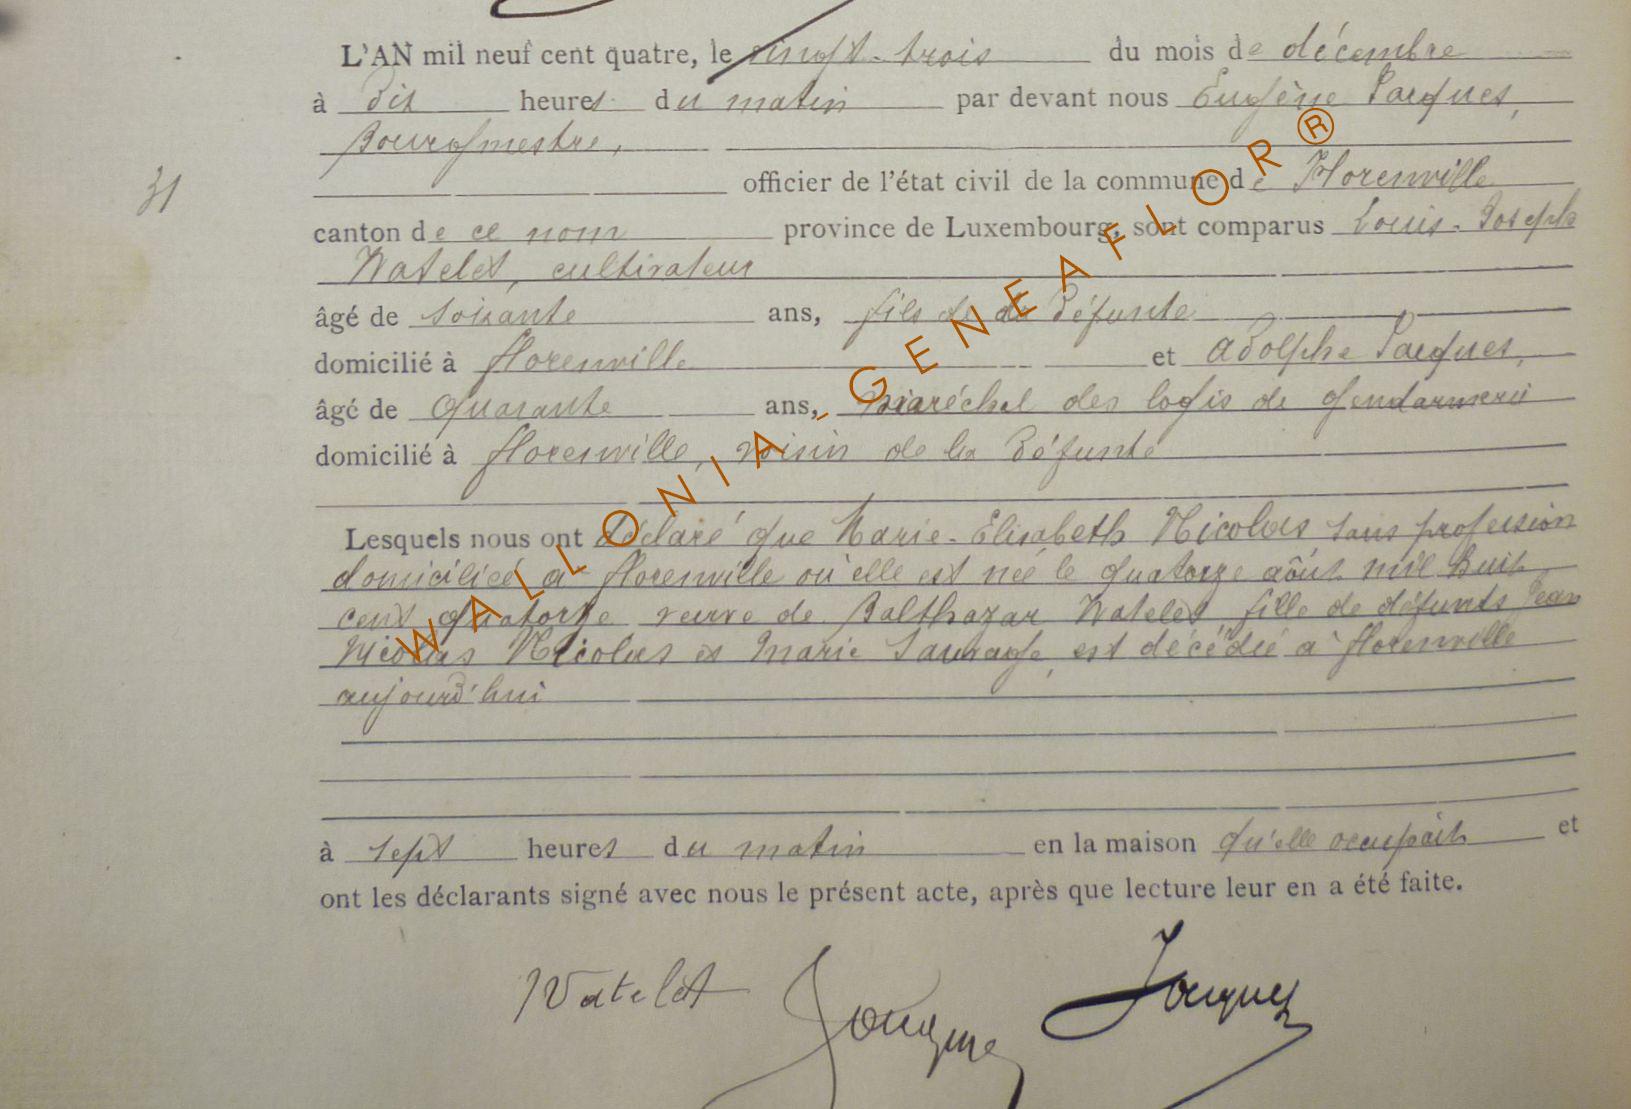 L'AN mil neuf cent quatre, le vingt-trois du mois de décembre
à dix heures du matin par devant nous Eugène Jacques,
Bourgmestre,
officier de l'état civil de la commune de Florenville
31
canton de ce nom province de Luxembourg, sont comparus Louis-Joseph
Watelet, cultivateur
âgé de soixante ans, fils de la défunte
domicilié à Florenville et Adolphe Jacques,
âgé de quarante ans, maréchal des logis de gendarmerie
domicilié à Florenville, voisin de la défunte
Lesquels nous ont déclaré que Marie-Elisabeth Nicolas sans profession
domiciliée à Florenville où elle est née le quatorze août mil huit
cent quatorze veuve de Balthazar Watelet, fille de défunts Jean
Nicolas Nicolas et Marie Sauvage, est décédée à Florenville
aujourd'hui
à sept heures du matin en la maison qu'elle occupait et
ont les déclarants signé avec nous le présent acte, après que lecture leur en a été faite.
Watelet Jacques Jacques
WALLONIA-GENEAFLOR®